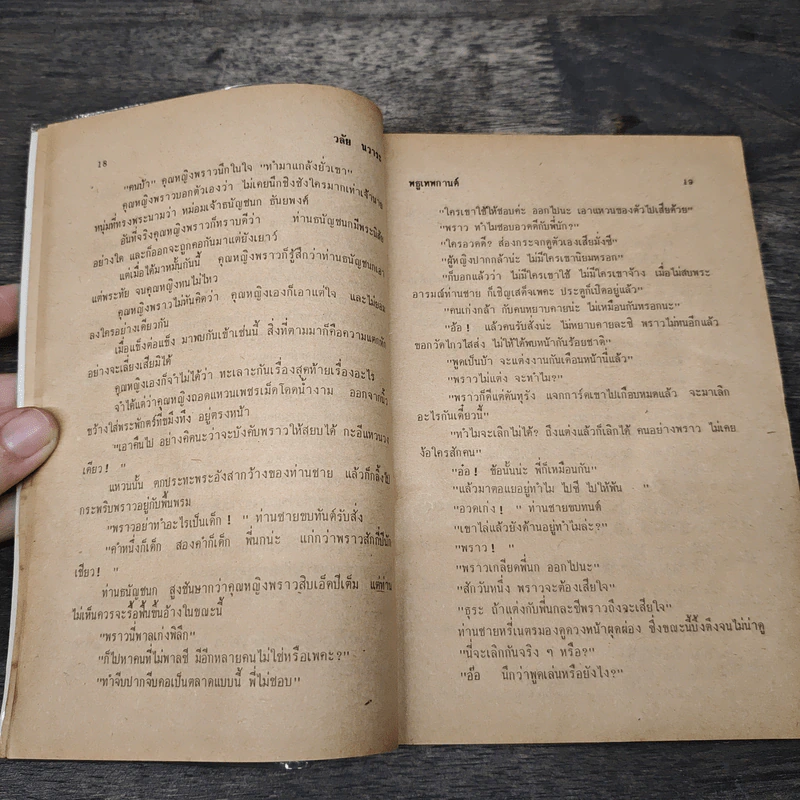 18
วลัย นวาระ
"คนบ้า" คุณหญิงพราวนึกในใจ "ทำมาแกล้งยั่วเขา"
คุณหญิงพราวบอกตัวเองว่า ไม่เคยนึกชิงชังใครมากเท่าเจ้า
หนุ่มที่ทรงพระนามว่า หม่อมเจ้าธนัญชนก ธันยพงศ์
อันที่จริงคุณหญิงพราวก็ทราบดีว่า ท่านธนัญชนกมีพระนิสัย
อย่างใด และก็ออกจะถูกคอกันมาแต่ยังเยาว์
แต่เมื่อได้มาหมั้นกันนี้ คุณหญิงพราวก็รู้สึกว่าท่านธนัญชนกเอา
แต่พระทัย จนคุณหญิงทนไม่ไหว
คุณหญิงพราวไม่ทันคิดว่า คุณหญิงเองก็เอาแต่ใจ และไม่ยอม
ลงใครอย่างเดียวกัน
เมื่อแข็งต่อแข็ง มาพบกันเข้าเช่นนี้ สิ่งที่ตามมาก็คือความแตกหัก
อย่างจะเลี่ยงเสียมิได้
คุณหญิงเองก็จำไม่ได้ว่า ทะเลาะกันเรื่องสุดท้ายเรื่องอะไร
จำได้แต่ว่าคุณหญิงถอดแหวนเพชรเม็ดโดดน้ำงาม ออกจากนิ้ว
ขว้างใส่พระพักตร์ที่ขมึงทึง อยู่ตรงหน้า
"เอาคืนไป อย่างคิดนะว่าจะบังคับพราวให้สยบได้ กะอีแหวนวง
เดียว! "
แหวนนั้น ตกปะทะพระอังสากว้างของท่านชาย แล้วก็กลิ้งไป
กระพริบพราวอยู่กับพื้นพรม
"พราวอย่าทำอะไรเป็นเด็ก! " ท่านชายขบทันต์รับสั่ง
"คำหนึ่งก็เด็ก สองคำก็เด็ก พี่นกน่ะ แก่กว่าพราวสักกี่ปีนัก
เชียว! "
ท่านธนัญชนก สูงชันษากว่าคุณหญิงพราวสิบเอ็ดปีเต็ม แต่ท่าน
ไม่เห็นควรจะรื้อฟื้นขึ้นอ้างในขณะนี้
"พราวนี่พาลเก่งพิลึก"
"ก็ไปหาคนที่ไม่พาลซี มีอีกหลายคนไม่ใช่หรือเพคะ?"
"ทำจีบปากจีบคอเป็นตลาดแบบนี้ พี่ไม่ชอบ"
พธูเทพกานต์
19
"ใครเขาใช้ให้ชอบค่ะ ออกไปนะ เอาแหวนของตัวไปเสียด้วย"
"พราว ทำไมชอบอวดดีกับพี่นัก?"
"ใครอวดดี? ส่องกระจกดูตัวเองเสียมั่งซี"
"ผู้หญิงปากกล้าน่ะ ไม่มีใครเขานิยมหรอก"
"ก็บอกแล้วว่า ไม่มีใครเขาใช้ ไม่มีใครเขาจ้าง เมื่อไม่สบพระ
อารมณ์ท่านชาย ก็เชิญเสด็จเพคะ ประตูก็เปิดอยู่แล้ว"
"คนเก่งกล้า กับคนหยาบคายน่ะ ไม่เหมือนกันหรอกนะ"
"อ้อ! แล้วคนรับสั่งน่ะ ไม่หยาบคายละซิ พราวไม่ทนอีกแล้ว
ขอกวัดไกวใสส่ง ไม่ให้ได้พบหน้ากันร้อยชาติ"
"พูดเป็นบ้า จะแต่งงานกันเดือนหน้านี้แล้ว"
"พราวไม่แต่ง จะทำไม?"
"พราวก็ดีแต่ดันทุรัง แจกการ์ดเขาไปเกือบหมดแล้ว จะมาเลิก
อะไรกันเดี๋ยวนี้"
"ทำไมจะเลิกไม่ได้? ถึงแต่งแล้วก็เลิกได้ คนอย่างพราว ไม่เคย
ง้อใครสักคน"
"อ๋อ! ข้อนั้นน่ะ พี่ก็เหมือนกัน"
"แล้วมาตอแยอยู่ทำไม ไปซี ไปให้พ้น "
"อวดเก่ง! " ท่านชายขบทนต์
"เขาไล่แล้วยังด้านอยู่ทำไมล่ะ?"
"พราว! "
"พราวเกลียดพี่นก ออกไปนะ"
"สักวันหนึ่ง พราวจะต้องเสียใจ"
"ธุระ ถ้าแต่งกับพี่นกละซีพราวถึงจะเสียใจ"
ท่านชายหรี่เนตรมองดูดวงหน้าผุดผ่อง ซึ่งขณะนี้บึ้งตึงจนไม่น่าดู
"นี่จะเลิกกันจริง ๆ หรือ?"
"อ๊อ นึกว่าพูดเล่นหรือยังไง?"